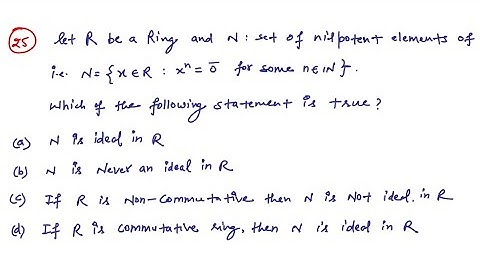 25 Let R be a Ring and N : set of nilpotent elements of
i.e. N = {x ∈ R : xⁿ = 0̄ for some n ∈ ℕ}.
Which of the following statement is true?
(a) N is ideal in R
(b) N is Never an ideal in R
(c) If R is Non-Commutative then N is Not ideal. in R
(d) If R is commutative ring, then N is ideal in R